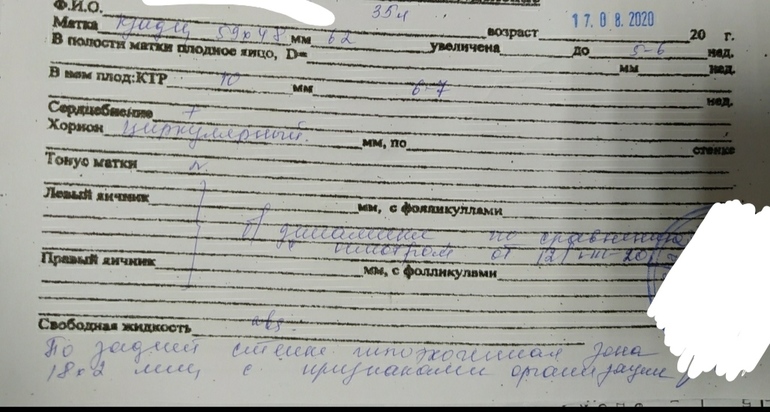 Ф.И.О. 35л 17.08.2020
Матка 59х48 мм 62 увеличена возраст до 5-6 20 г. нед.
В полости матки плодное яйцо, D= мм нед.
В нем плод:КТР 10 мм 6-7 нед.
Сердцебиение +
Хорион циркулярный мм, по стенке
Тонус матки N.
Левый яичник мм, с фолликулами
динамика по сравнению
осмотром от 12/VIII-20
Правый яичник мм, с фолликулами
Свободная жидкость abs
По задней стенке гипоэхогенная зона
18х2 мм с признаками организации